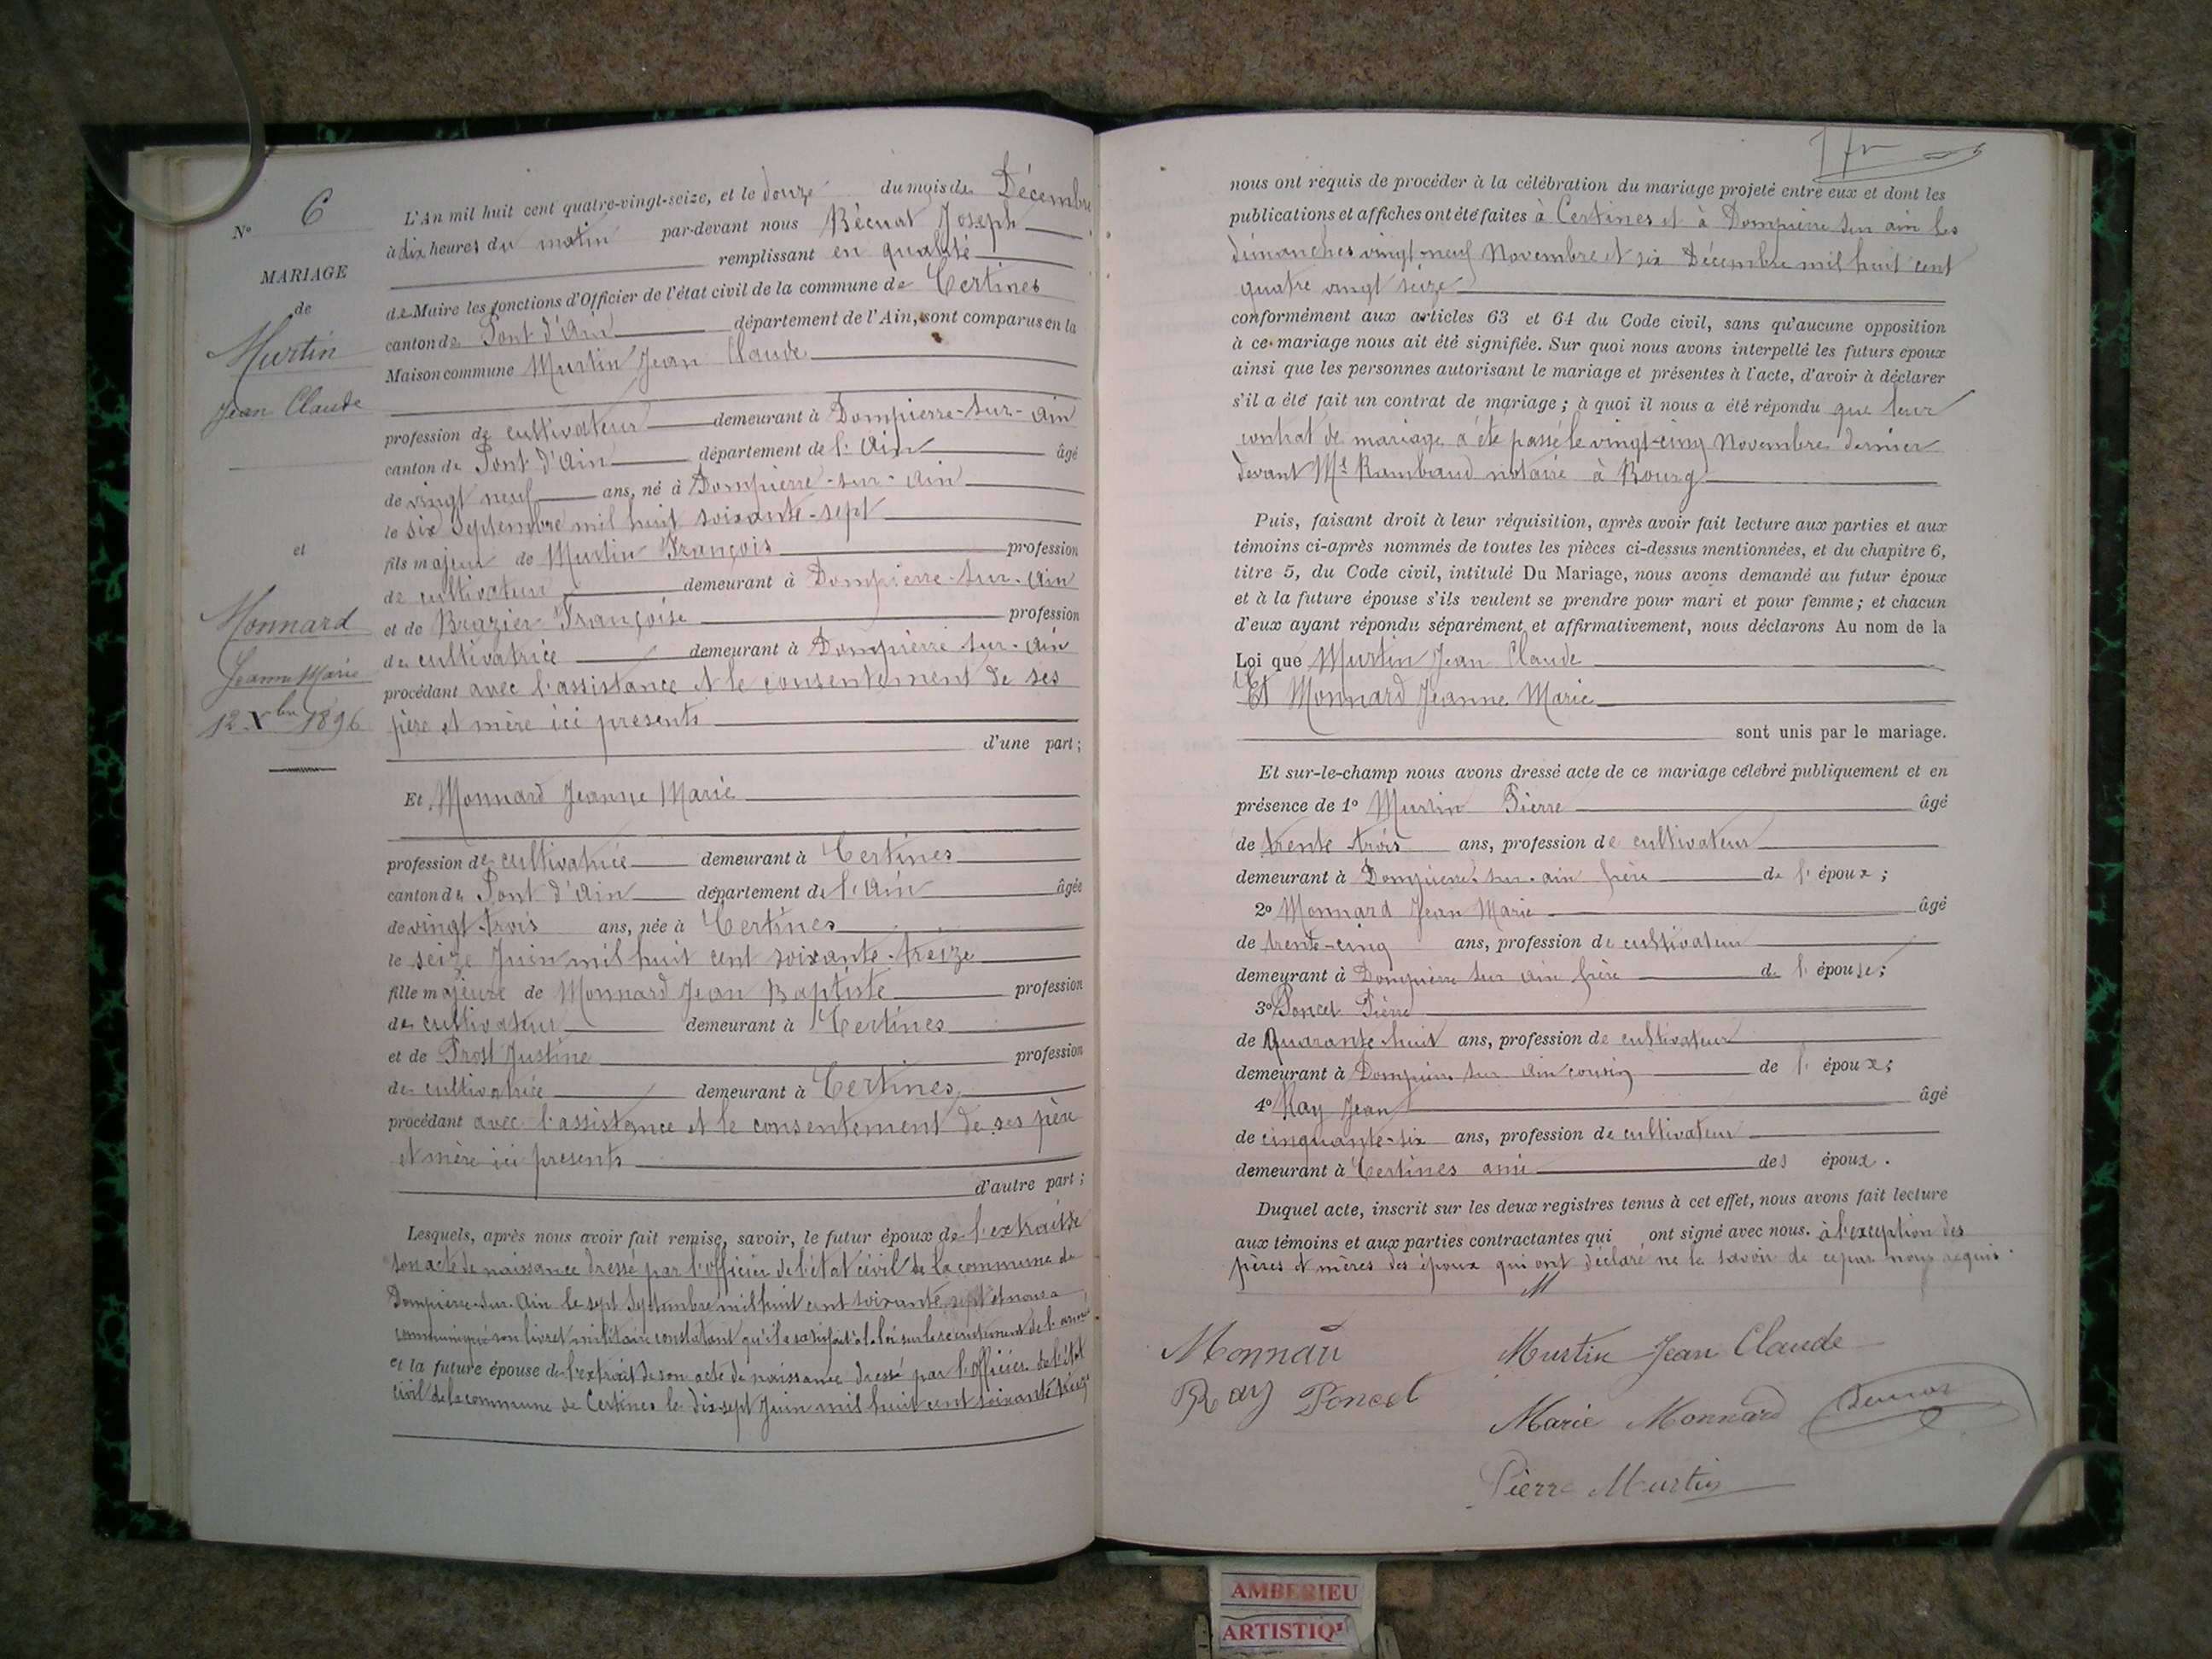 N° 6
MARIAGE
de
Murtin
Jean Claude
et
Monnard
Jeanne Marie
12 Xbre 1896
L'An mil huit cent quatre-vingt-seize, et le douze du mois de Décembre
à dix heures du matin par-devant nous Bécuat Joseph
remplissant en qualité
de Maire les fonctions d'Officier de l'état civil de la commune de Certines
canton de Pont d'Ain département de l'Ain, sont comparus en la
Maison commune Murtin Jean Claude
profession de cultivateur demeurant à Dompierre-sur-Ain
canton de Pont d'Ain département de l'Ain âgé
de vingt neuf ans, né à Dompierre-sur-Ain
le six Septembre mil huit soixante-sept
fils majeur de Murtin François profession
de cultivateur demeurant à Dompierre-sur-Ain
et de Brazier Françoise profession
de cultivatrice demeurant à Dompierre sur-Ain
procédant avec l'assistance et le consentement de ses
père et mère ici présents
d'une part;
Et Monnard Jeanne Marie
profession de cultivatrice demeurant à Certines
canton de Pont d'Ain département de l'Ain âgée
de vingt trois ans, née à Certines
le seize Juin mil huit cent soixante-treize
fille majeure de Monnard Jean Baptiste profession
de cultivateur demeurant à Certines
et de Prost Justine profession
de cultivatrice demeurant à Certines
procédant avec l'assistance et le consentement de ses père
et mère ici présents
d'autre part;
Lesquels, après nous avoir fait remise, savoir, le futur époux de l'extrait de
son acte de naissance dressé par l'officier de l'état civil de la commune de
Dompierre-sur-Ain le sept Septembre mil huit cent soixante sept et nous a
communiqué son livret militaire constatant qu'il a satisfait à la loi sur le recrutement de l'armée
et la future épouse de l'extrait de son acte de naissance dressé par l'officier de l'état
civil de la commune de Certines le dix-sept Juin mil huit cent soixante treize
nous ont requis de procéder à la célébration du mariage projeté entre eux et dont les
publications et affiches ont été faites à Certines et à Dompierre sur ain les
dimanches vingt-neuf Novembre et six Décembre mil huit cent
quatre vingt seize
conformément aux articles 63 et 64 du Code civil, sans qu'aucune opposition
à ce mariage nous ait été signifiée. Sur quoi nous avons interpellé les futurs époux
ainsi que les personnes autorisant le mariage et présentes à l'acte, d'avoir à déclarer
s'il a été fait un contrat de mariage; à quoi il nous a été répondu que leur
contrat de mariage a été passé le vingt-cinq Novembre dernier
devant Me Rambaud notaire à Bourg
Puis, faisant droit à leur réquisition, après avoir fait lecture aux parties et aux
témoins ci-après nommés de toutes les pièces ci-dessus mentionnées, et du chapitre 6,
titre 5, du Code civil, intitulé Du Mariage, nous avons demandé au futur époux
et à la future épouse s'ils veulent se prendre pour mari et pour femme; et chacun
d'eux ayant répondu séparément et affirmativement, nous déclarons Au nom de la
Loi que Murtin Jean Claude
Et Monnard Jeanne Marie
sont unis par le mariage.
Et sur-le-champ nous avons dressé acte de ce mariage célébré publiquement et en
présence de 1° Murtin Pierre âgé
de trente trois ans, profession de cultivateur
demeurant à Dompierre sur-ain frère de l'époux;
2° Monnard Jean Marie âgé
de trente-cinq ans, profession de cultivateur
demeurant à Dompierre sur Ain frère de l'épouse;
3° Poncet Pierre
de Quarante huit ans, profession de cultivateur
demeurant à Dompierre sur Ain cousin de l'époux;
4° Ray Jean âgé
de cinquante-six ans, profession de cultivateur
demeurant à Certines ami des époux.
Duquel acte, inscrit sur les deux registres tenus à cet effet, nous avons fait lecture
aux témoins et aux parties contractantes qui ont signé avec nous. à l'exception des
pères et mères des époux qui ont déclaré ne le savoir de ce par nous requis.
Monnard Murtin Jean Claude
Ray Poncet Marie Monnard
Pierre Murtin
AMBERIEU
ARTISTIQ